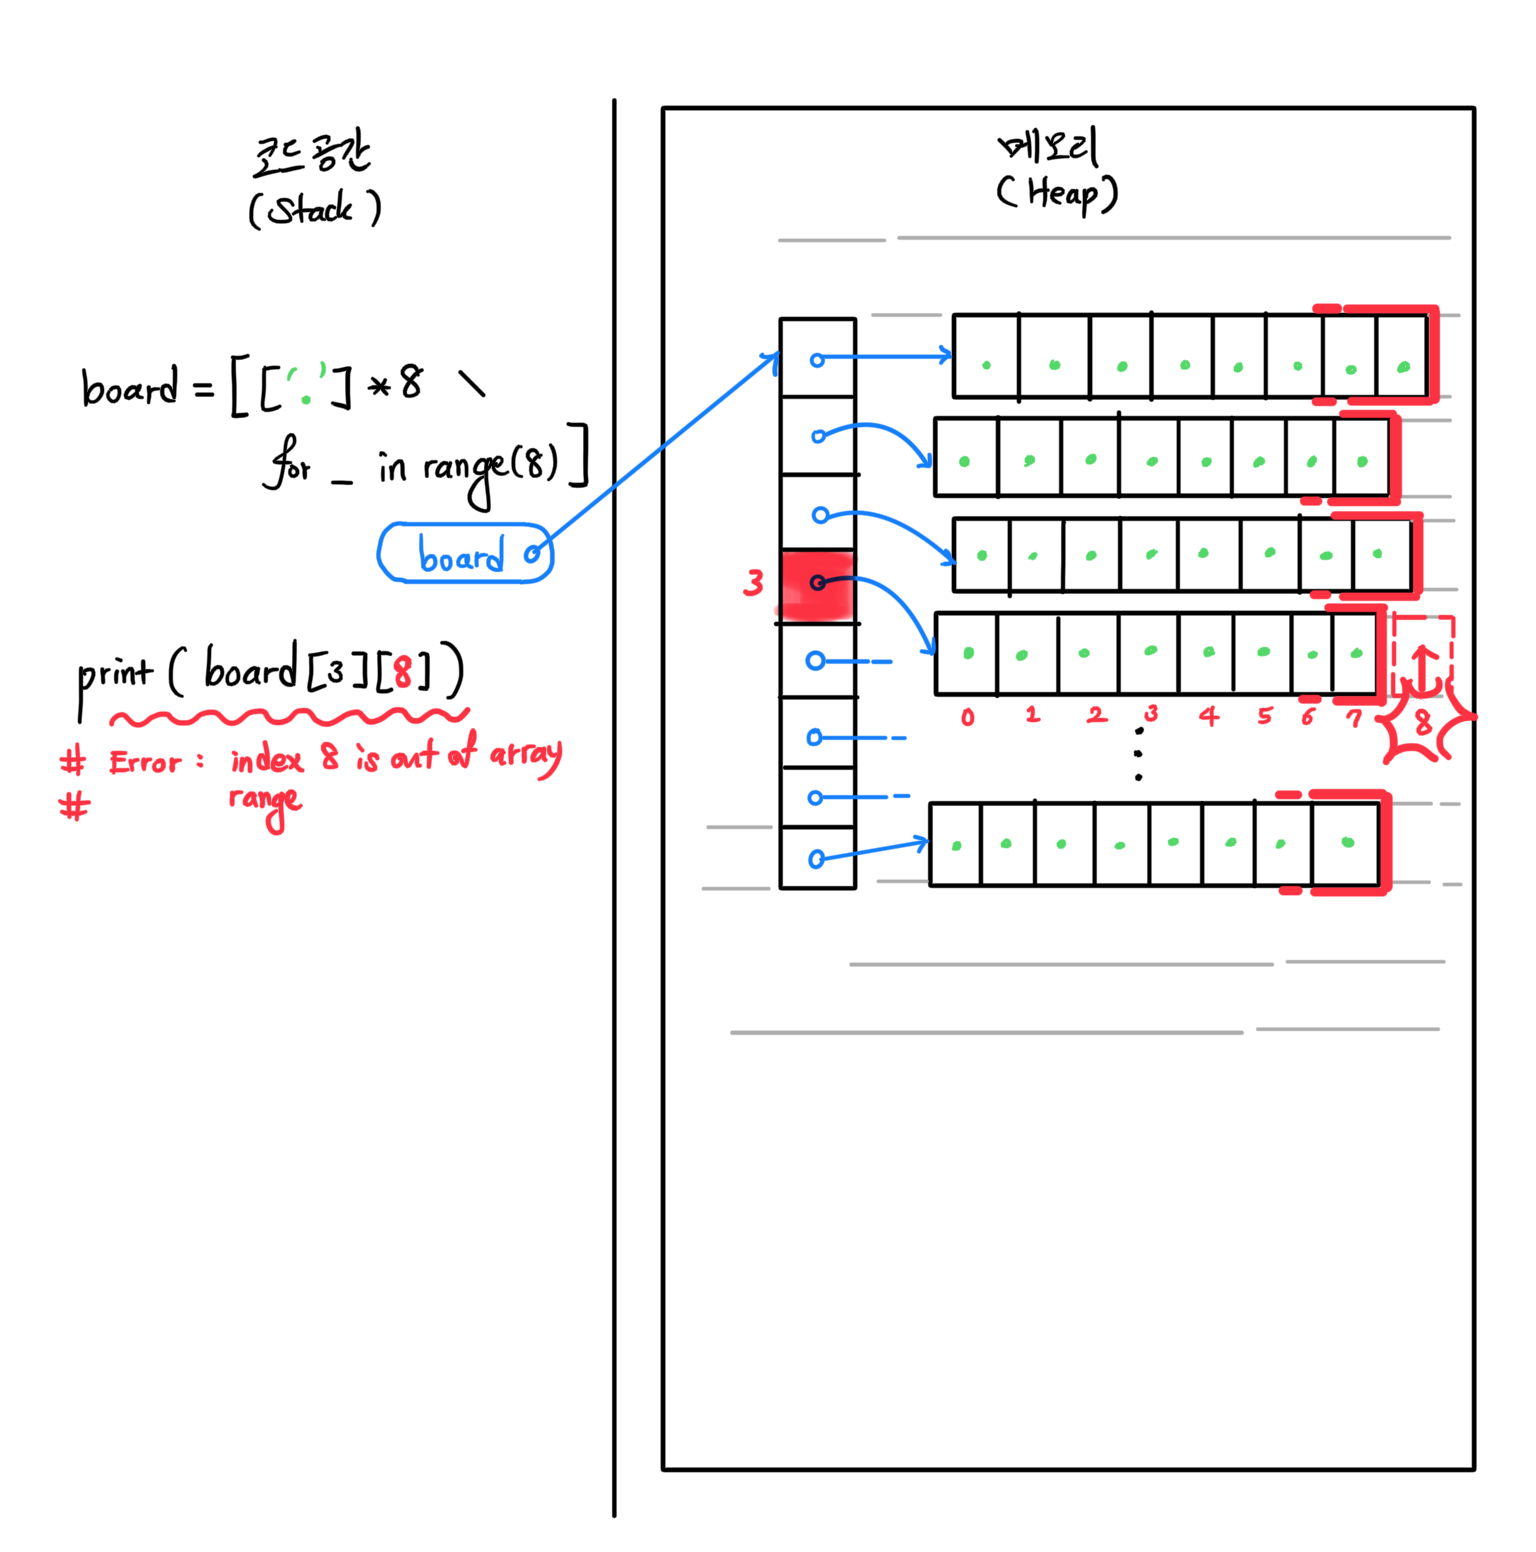 코드 공간
(Stack)
board = [['.'] * 8 \
for _ in range(8)]
board
print(board[3][8])
# Error : index 8 is out of array
# range
메모리
(Heap)
3
0 1 2 3 4 5 6 7 8